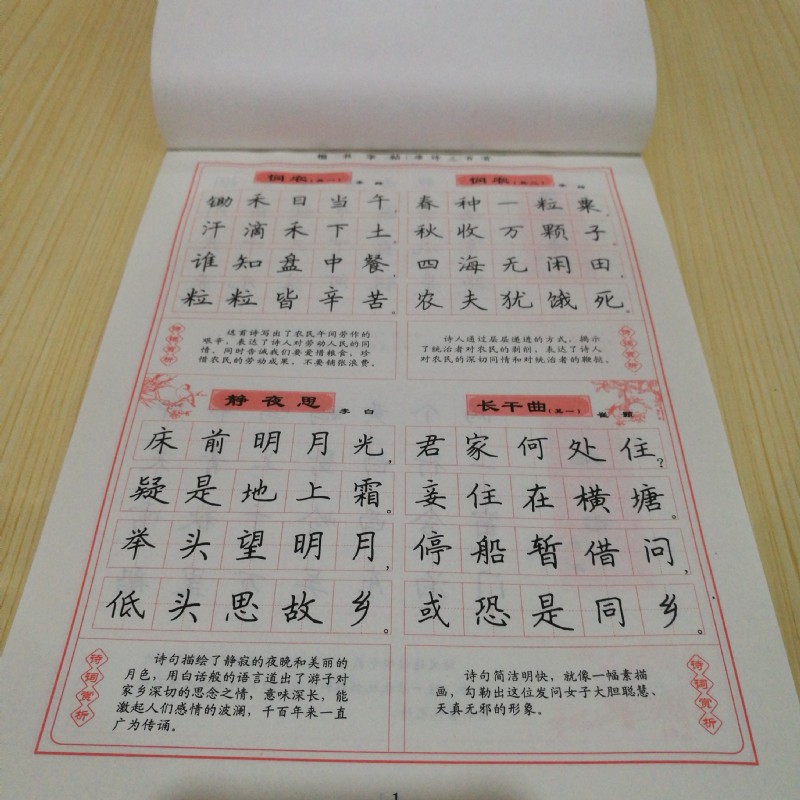 楷书字帖·唐诗三百首
悯农(其一) 李绅
锄禾日当午,
汗滴禾下土。
谁知盘中餐,
粒粒皆辛苦。
诗词赏析
这首诗写出了农民午间劳作的
艰辛,表达了诗人对劳动人民的同
情,同时告诫我们要爱惜粮食,珍
惜农民的劳动成果,不要铺张浪费。
悯农(其二) 李绅
春种一粒粟,
秋收万颗子。
四海无闲田,
农夫犹饿死。
诗人通过层层递进的方式,揭示
了统治者对农民的剥削,表达了诗人
对农民的深切同情和对统治者的鞭挞。
诗词赏析
静夜思 李白
床前明月光,
疑是地上霜。
举头望明月,
低头思故乡。
诗词赏析
诗句描绘了静寂的夜晚和美丽的
月色,用白话般的语言道出了游子对
家乡深切的思念之情,意味深长,能
激起人们感情的波澜,千百年来一直
广为传诵。
长干曲(其一) 崔颢
君家何处住?
妾住在横塘。
停船暂借问,
或恐是同乡。
诗句简洁明快,就像一幅素描
画,勾勒出这位发问女子大胆聪慧、
天真无邪的形象。
诗词赏析
1